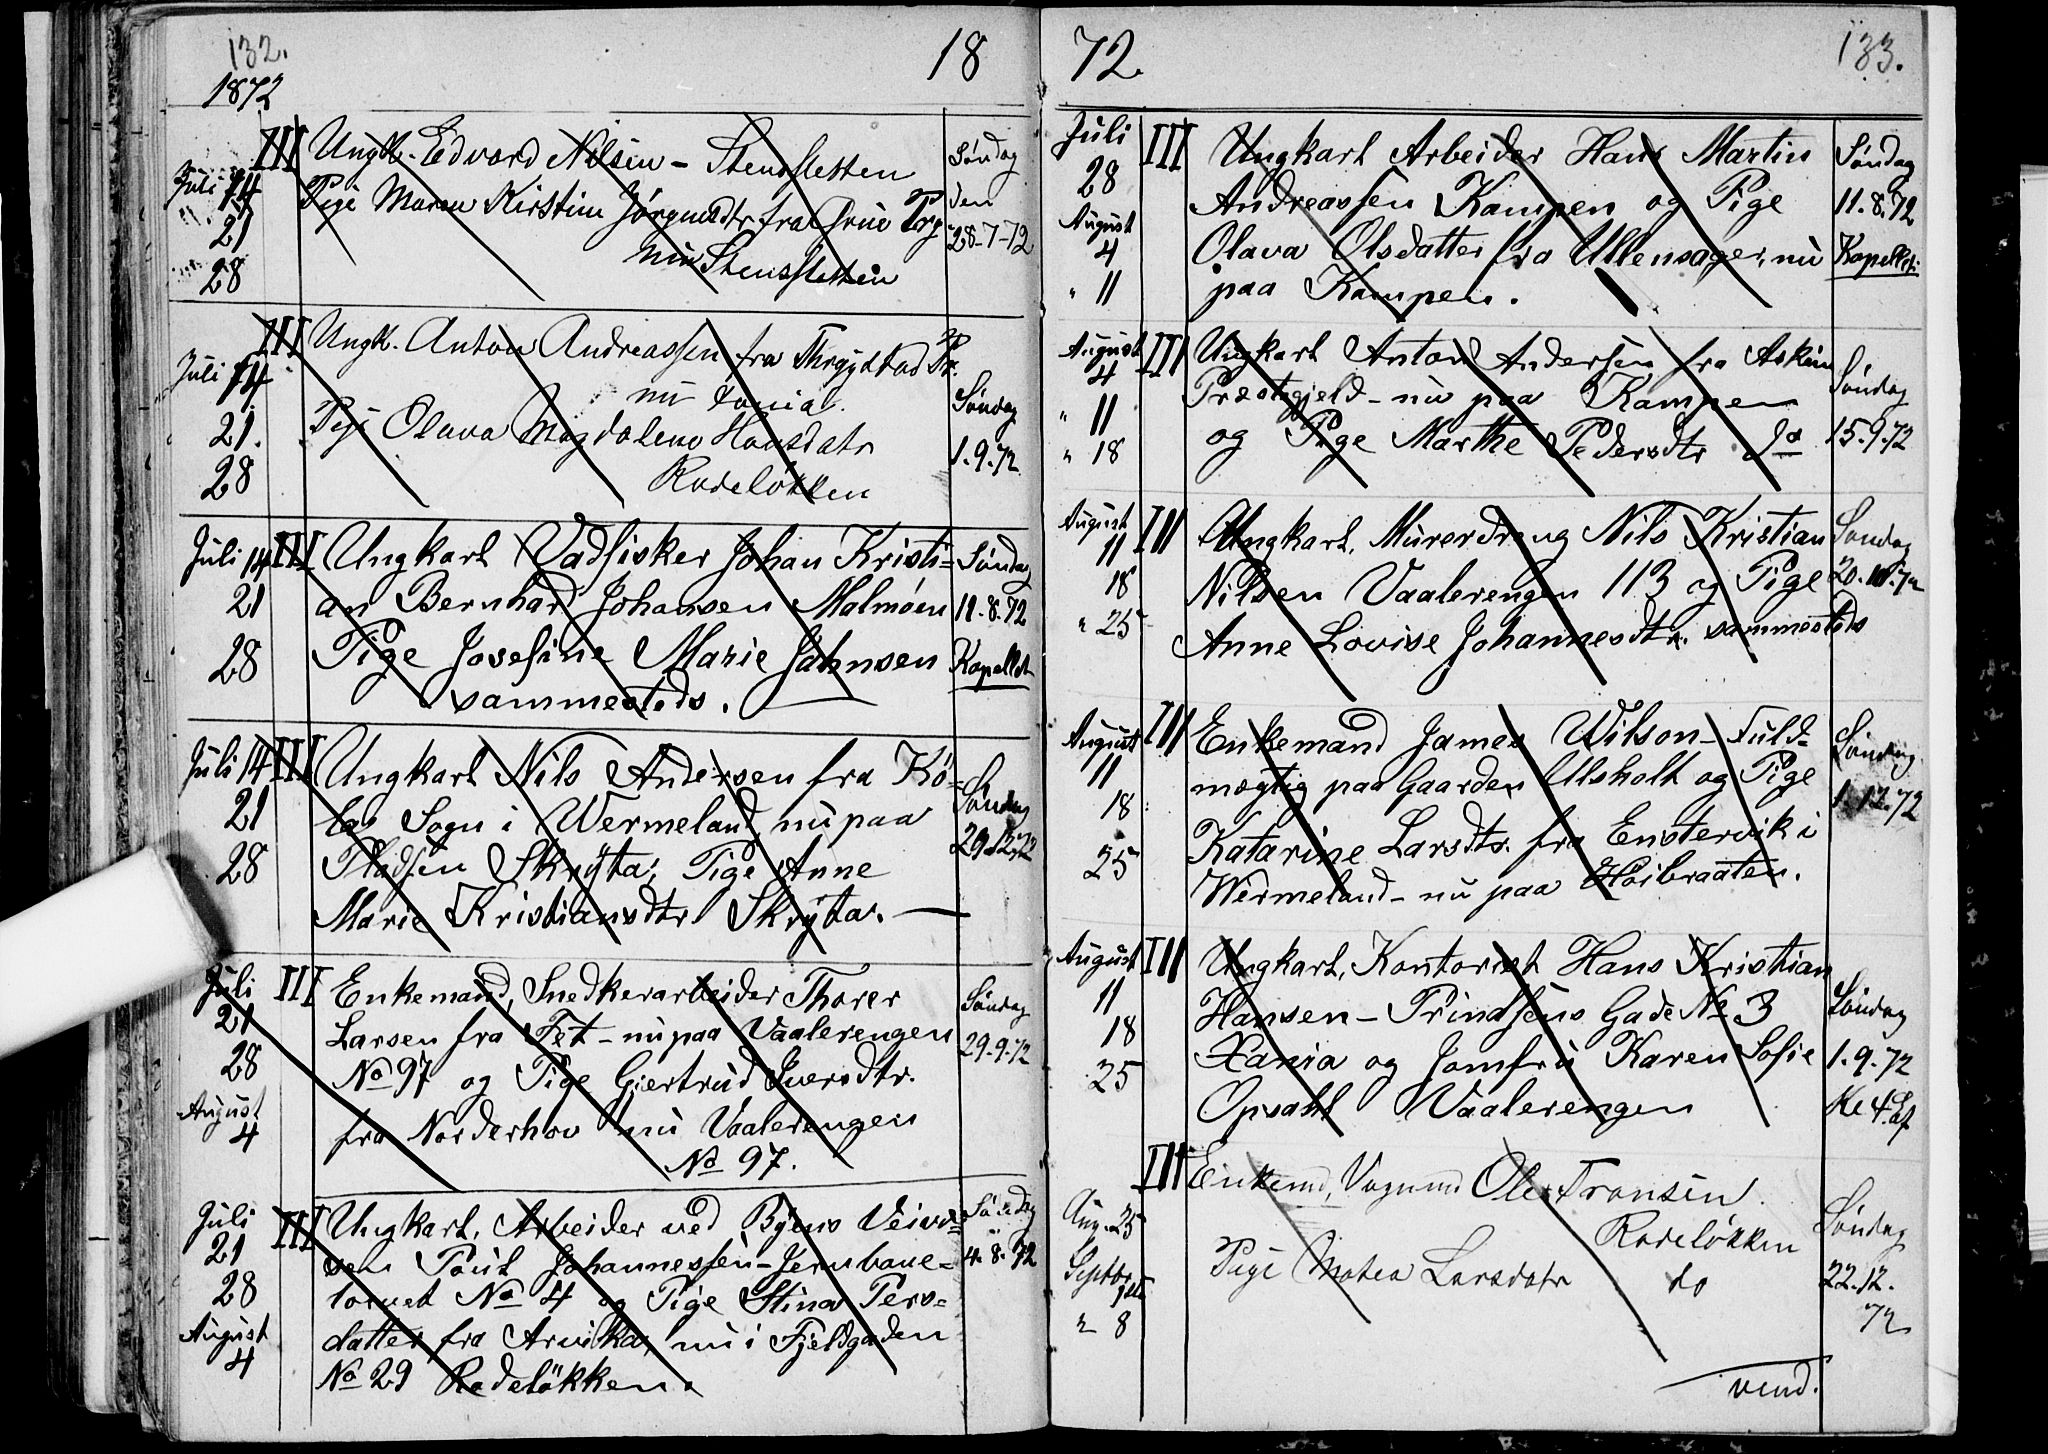 132.
18
1872
Juli 14
21
28
III
Ungk. Edvard Nilsen - Stensletten
Pige Maren Kirstine Jörgensdtr fra Grue Prg
nu Stensletten
Söndag
den
28-7-72
Juli 14
21.
28
III
Ungk. Anton Andreassen fra Thrygstad Pr.
nu Xania
Pige Olava Magdalene Hansdatr
Rodelökken
Söndag
1.9.72
Juli 14
21
28
III
Ungkarl Vadfisker Johan Kristi-
an Bernhard Johansen Malmöen
Pige Josefine Marie Jahnsen
sammesteds.
Söndag
11.8.72
Kapellet
Juli 14
21
28
III
Ungkarl Nils Andersen fra Kö-
la Sogn i Wermeland, nu paa
Pladsen Skrÿta; Pige Anne
Marie Kristiansdtr Skrÿta.
Söndag
29.12.72
Juli
21
28
August
4
III
Enkemand, Snedkerarbeider Thorer
Larsen fra Fet - nu paa Vaalerengen
No 97 og Pige Giertrud Iversdtr.
fra Norderhov nu Vaalerengen
No 97.
Söndag
29.9.72
Juli
21
28
August
4
III
Ungkarl, Arbeider ved Byens Veivæ-
sen Paul Johannessen - Jernbane-
torvet No 4 og Pige Stina Pers-
datter fra Arvika, nu i Fjeldgaden
No 29 Rodelökken.
Söndag
4.8.72
72.
133.
Juli
28
August
4
" 11
III
Ungkarl Arbeider Hans Martin
Andreassen Kampen og Pige
Olava Olsdatter fra Ullensager, nu
paa Kampen.
Söndag
11.8.72
Kapellet
August
4
" 11
" 18
III
Ungkarl Anton Andersen fra Askim
Præstegjeld - nu paa Kampen
og Pige Marthe Pedersdtr do
Söndag
15.9.72
August
11
18
" 25
III
Ungkarl, Murerdreng Nils Kristian
Nilsen Vaalerengen 113 og Pige
Anne Lovise Johannesdtr. sammesteds
Söndag
August
11
18
25
III
Enkemand James Wilson - Fuld-
mægtig paa Gaarden Ulsholt og Pige
Katarine Larsdtr. fra Enstervik i
Wermeland - nu paa Høibraaten.
Söndag
1.12.72
August
11
18
25
III
Ungkarl, Kontorist Hans Kristian
Hansen - Prindsens Gade No 3
Xania og Jomfru Karen Sofie
Opsahl Vaalerengen
Söndag
1.9.72
Aug. 25
Septbr
1ste
" 8
III
Enkemd, Vognmd Ole Fransen
Rodelökken
Pige Mathea Larsdatr do
Söndag
22.12.
72
vend.